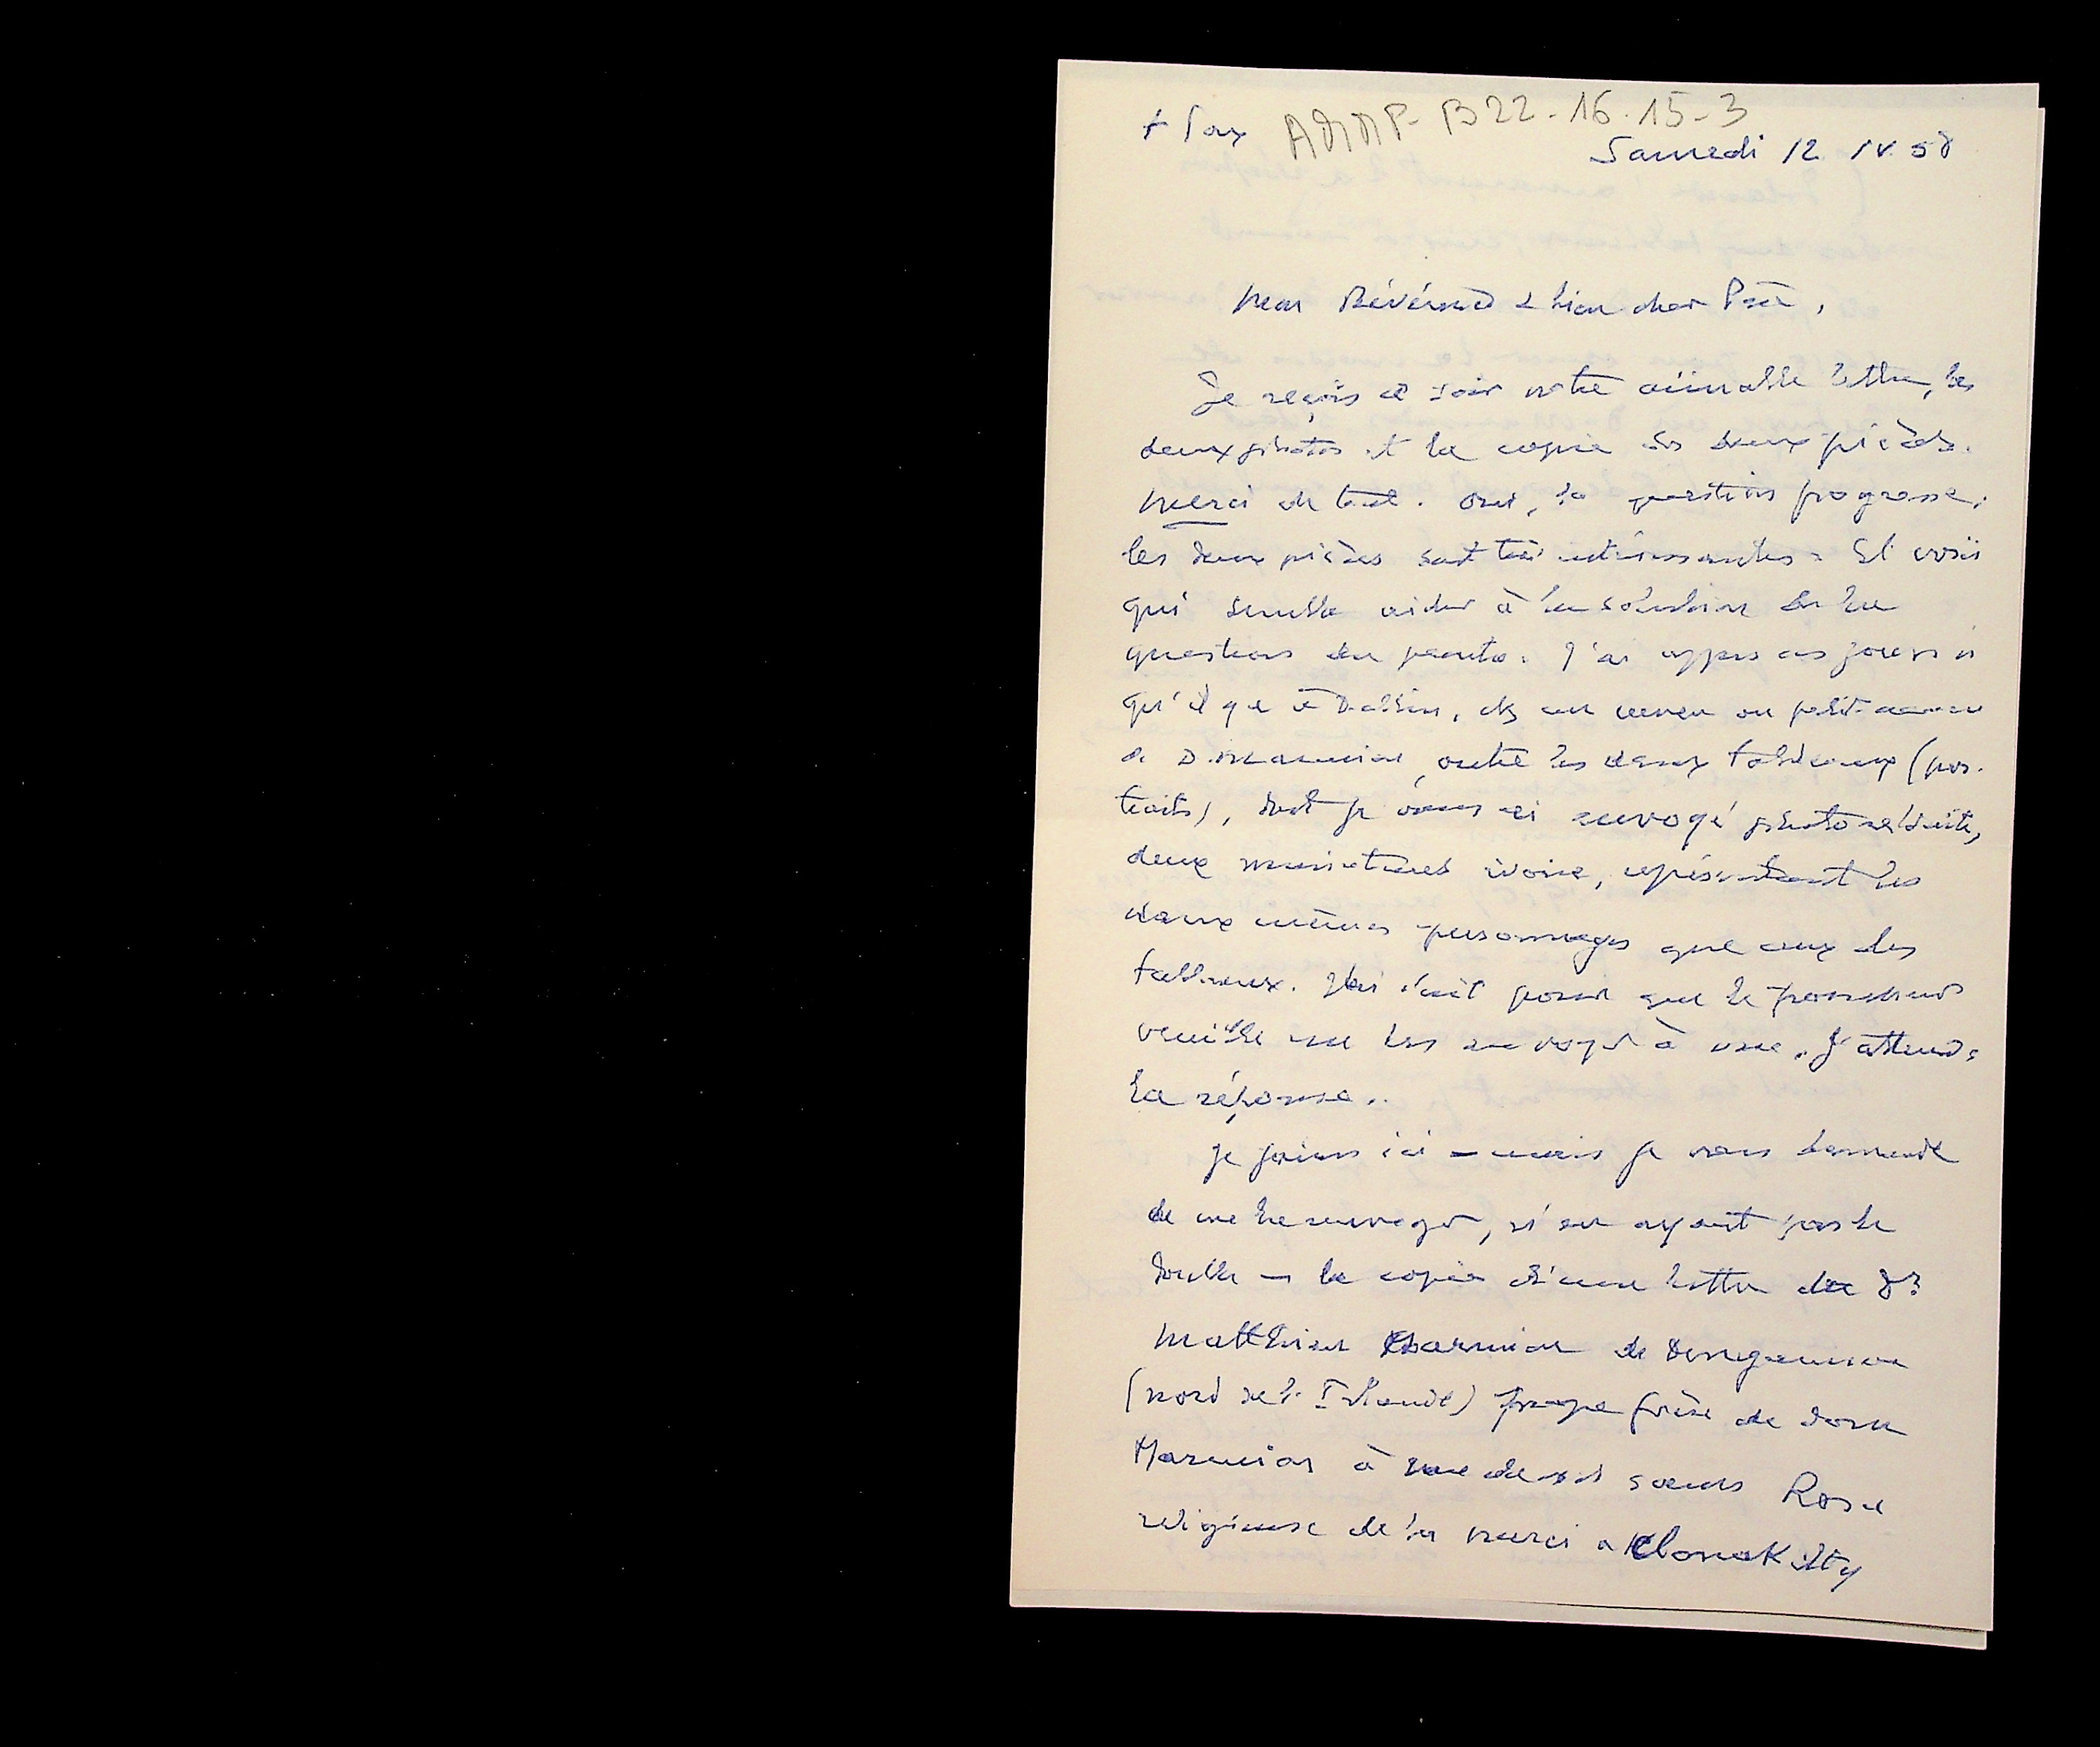 + Pax ADMP-B22-16.15-3
Samedi 12 IV 58
Mon Révérend & bien cher Père,
Je reçois ce soir votre aimable lettre, les
deux photos et la copie des deux pièces.
Merci de tout. Oui, la question progresse.
les deux pièces sont très intéressantes. Et voici
qui semble aider à la solution de la
question du peintre. J'ai appris ces jours ci
qu'il y a à Dublin, chez un neveu ou petit neveu
de D. Marmion, outre les deux tableaux (por-
traits), dont je vous ai envoyé photo réduite,
deux miniatures ivoire, représentant les
deux mêmes personnages que ceux des
tableaux. J'ai écrit pour que le possesseur
veuille me les envoyer à vue. J'attends
la réponse..
Je joins ici – mais je vous demande
de me le renvoyer, n'en ayant pas le
double – la copie d'une lettre du Dr
Matthieu Marmion de Dungannon
(nord de l'Irlande) propre frère de dom
Marmion à une de ses sœurs Rose
religieuse de la Merci a Clonakilty